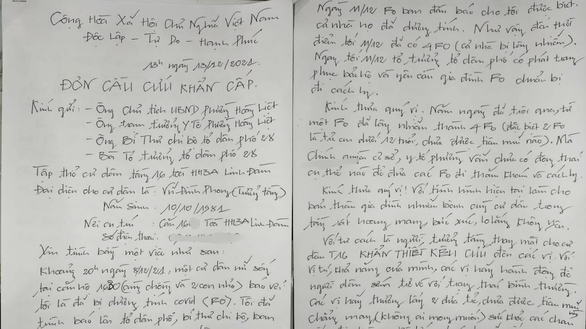 Cộng Hòa Xã Hội Chủ Nghĩa Việt Nam
Độc Lập - Tự Do - Hạnh Phúc
ngày 13/12/2021
ĐƠN CẦU CỨU KHẨN CẤP.
Kính gửi: - Ông Chủ tịch UBND Phường Hoàng Liệt
- Ông trạm trưởng Y Tế Phường Hoàng Liệt
- Ông Bí Thư chi bộ tổ dân phố 28
- Bà Tổ trưởng tổ dân phố 28
Tập thể cư dân tầng 16 tòa HH3A Linh Đàm
Đại diện cho cư dân là: Vũ Đình Phong (Trưởng tầng)
Năm Sinh: 10/10/1981
Nơi cư trú: Căn 16 Tòa HH3A Linh Đàm
Số điện thoại:
Xin trình bày một việc như sau:
Khoảng 20h ngày 8/12/21, một cư dân nữ sống
tại căn hộ (vợ chồng và 2 con nhỏ) báo với
tôi là đã bị dương tính covid (F0). Tôi đã
trình báo lên tổ dân phố, bí thư chi bộ, ban
Ngày 11/12 F0 ban đầu báo cho tôi được biết
cả nhà họ đã dương tính. Như vậy đến thời
điểm tối 11/12 đã có 4 F0 (cả nhà bị lây nhiễm).
Ngày tối 11/12 tổ trưởng tổ dân phố có phát trang
phục bảo hộ và yêu cầu gia đình F0 chuẩn bị
đi cách ly.
Kính thưa quý vị. Năm ngày đã trôi qua, từ
một F0 đã lây nhiễm thành 4 F0 (đặc biệt 2 F0
là trẻ em dưới 12 tuổi, chưa được tiêm mũi nào). Mà
Chính quyền cơ sở, y tế phường vẫn chưa có động thái
cụ thể nào để đưa các F0 đi thăm khám và cách ly.
Kính thưa quý vị! Với tình hình hiện tại làm cho
bản thân gia đình nhiễm bệnh cùng cư dân trong
tầng rất hoang mang, bức xúc, lo lắng không yên.
Với tư cách là người trưởng tầng thay mặt cho cư
dân T16 KHẨN THIẾT KÊU CỨU đến các vị. Với
vị trí, khả năng của mình, các vị hãy hành động để
người dân sớm trở về với trạng thái bình thường.
Các vị hãy thương lấy 2 đứa trẻ, chưa được tiêm mũi
chẳng may (không ai mong muốn) sức khỏe các cháu